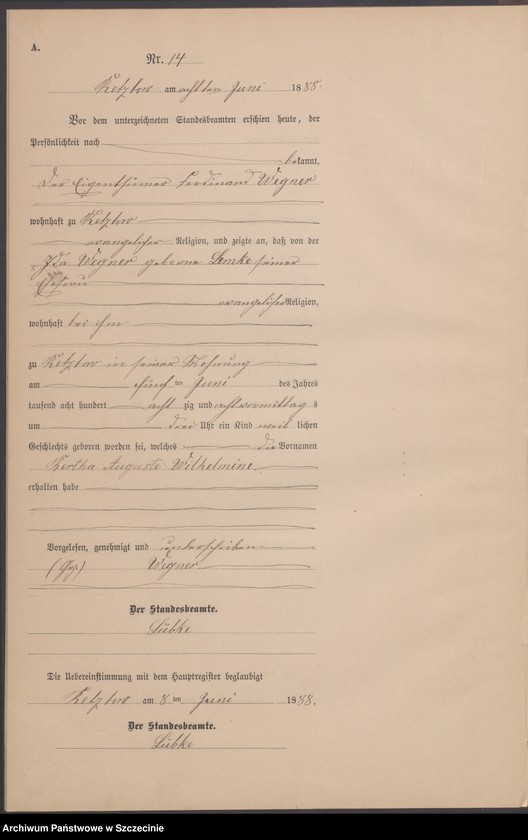 A.
Nr. 14
Ketzkow am achtten Juni 1888.
Vor dem unterzeichneten Standesbeamten erschien heute, der
Persönlichkeit nach
bekannt,
Der Eigenthümer Ferdinand Wegner
wohnhaft zu
evangelischer Religion, und zeigte an, daß von der
Ida Wegner geborne Lemke seiner
Ehefrau
evangelischer Religion,
wohnhaft bei ihm
zu in seiner Wohnung
am fünf ten Juni des Jahres
tausend acht hundert acht zig und acht vormittag s
um drei Uhr ein Kind weib lichen
Geschlechts geboren worden sei, welches die Vornamen
Bertha Auguste Wilhelmine
erhalten habe
Vorgelesen, genehmigt und unterschrieben
(Gez.) Wegner
Der Standesbeamte.
Lübke
Die Uebereinstimmung mit dem Hauptregister beglaubigt
am 8 ten Juni 1888.
Der Standesbeamte.
Lübke
Archiwum Państwowe w Szczecinie